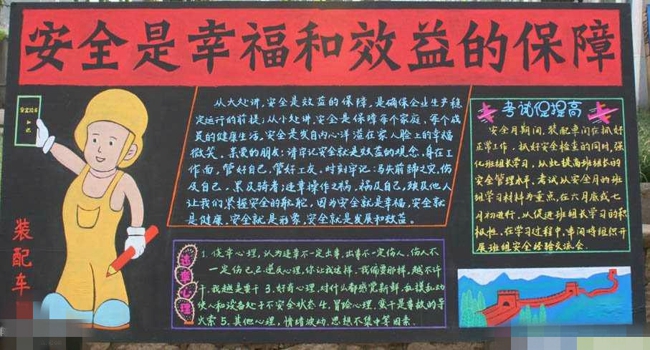 安全是幸福和效益的保障
从大处讲,安全是效益的保障,是确保企业生产稳
定运行的前提;从小处讲,安全是保障每个家庭,每个成
员的健康生活,安全是发自内心洋溢在家人脸上的幸福
微笑。亲爱的朋友:请牢记安全就是效益的观念,身在工
作面,管好自己,管好工友,时刻牢记:
及自己,累及骑者;违章操作之祸,祸及自己,殃及他人
让我们掌握安全的船舵,因为安全就是幸福,安全就
是健康,安全就是形象,安全就是发展和效益。
考试促提高
安全月期间,装配车间在抓好
正常工作,抓好安全检查的同时,强
化班组长学习,从此提高班组长的
安全管理水平,考试从安全月的班
组学习材料为重点,在六月底或七
月初进行,从促进班组长学习的积
极性,在学习过程中,车间将组织开
展班组安全经验交流会。
违章心理
1.侥幸心理,认为违章不一定出事,出事不一定伤人,伤人不
一定伤己 2.逆反心理,你让我这样,我偏要那样,越不许
干,我越是要干 3.好奇心理,对什么都感觉新鲜,
使心和设备处于不安全状态 4.冒险心理,
火索 5.其他心理,情绪波动,思想不集中等因素.
装配车